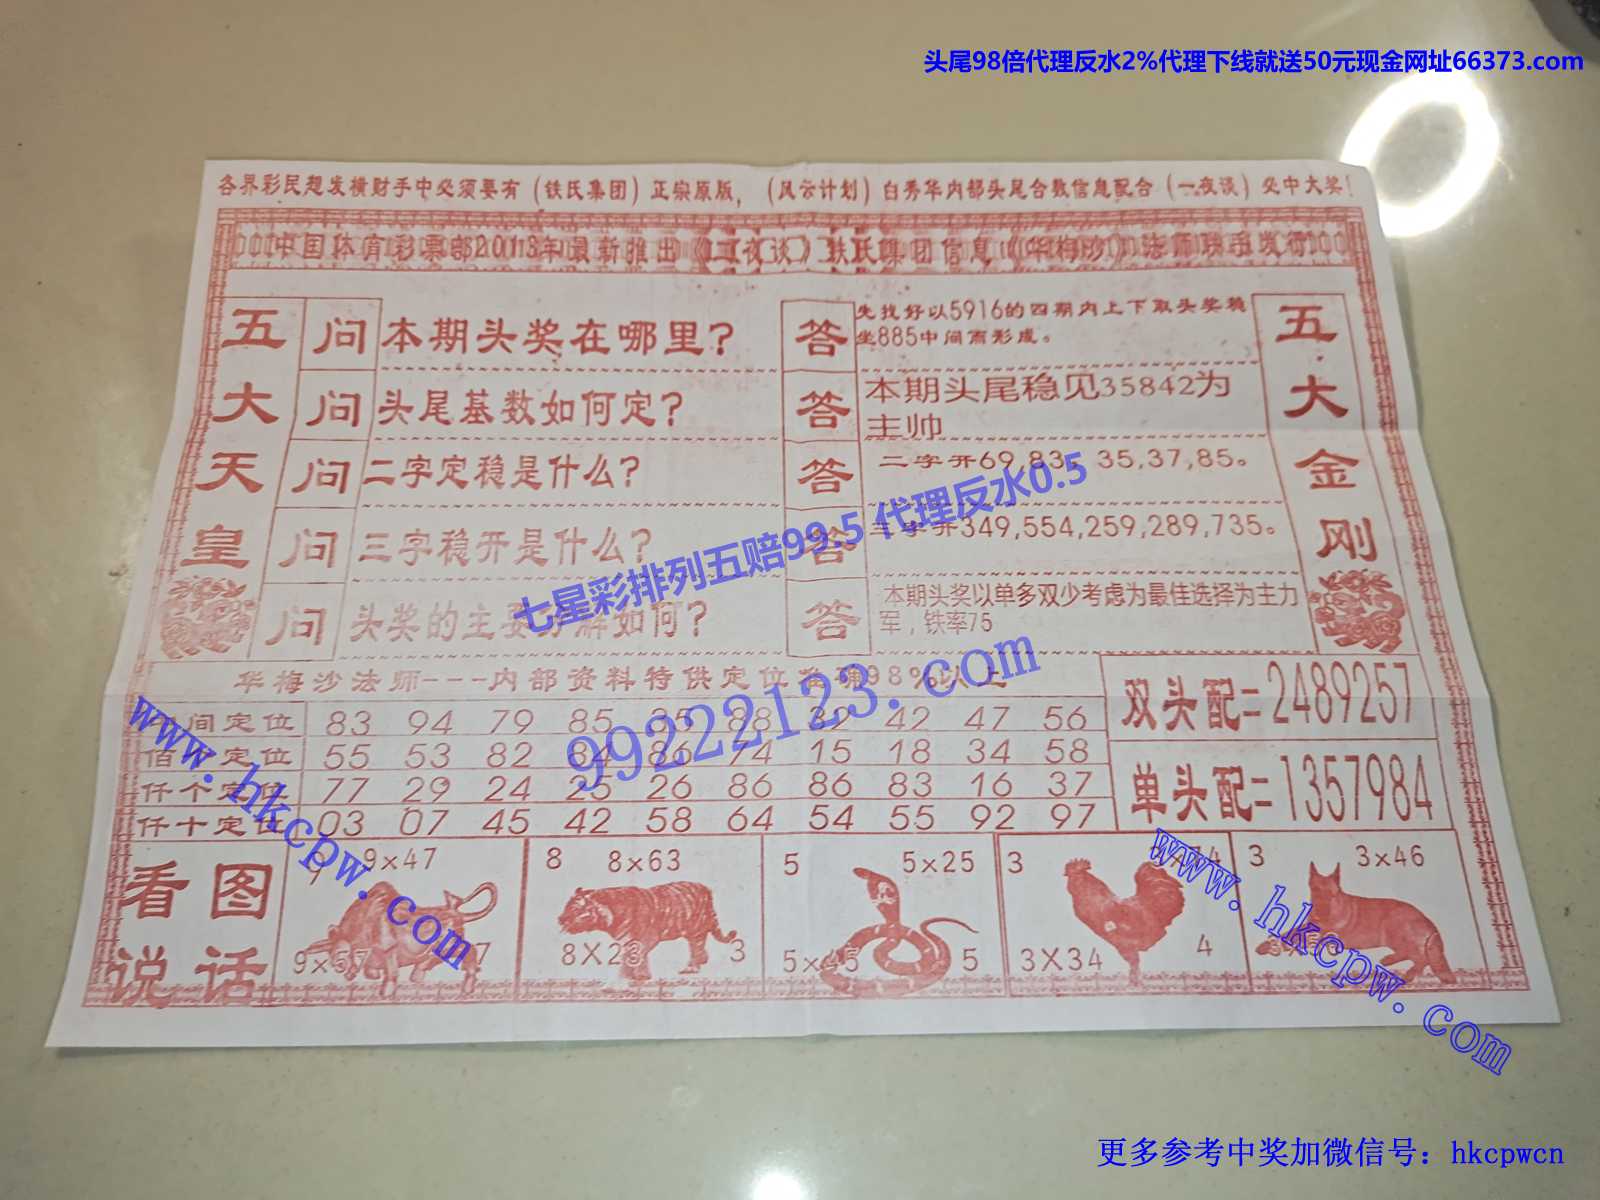 头尾98倍代理反水2%代理下线就送50元现金网址66373.com
各界彩民想发横财手中必须要有（铁氏集团）正宗原版，（风云计划）白秀华内部头尾合数信息配合（一夜谈）必中大奖！
中国体育彩票邮2013年最新推出《一夜谈》铁氏集团信息《华梅沙》法师联合发行
五大天皇
问 本期头奖在哪里？
答 先找好以5916的四期内上下取头奖稳坐885中间而形成。
问 头尾基数如何定？
答 本期头尾稳见35842为主帅
问 二字定稳是什么？
答 二字开69,83, 35,37,85。
问 三字稳开是什么？
答 三字开349,554,259,289,735。
问 头奖的主要分解如何？
答 本期头奖以单多双少考虑为最佳选择为主力军，铁率75
五大金刚
七星彩排列五赔99.5 代理反水0.5
华梅沙法师---内部资料特供定位准确98%以上
间定位 83 94 79 85 35 88 32 42 47 56
佰个定位 55 53 82 84 86 74 15 18 34 58
仟个定位 77 29 24 25 26 86 86 83 16 37
仟十定位 03 07 45 42 58 64 54 55 92 97
双头配=2489257
单头配=1357984
99222123.com
www.hkcpw.com
www.hkcpw.com
看图说话
9 9×47
9×57 7
8 8×63
8×23 3
5 5×25
5×45 5
3
3×34 4
3 3×46
更多参考中奖加微信号：hkcpwcn